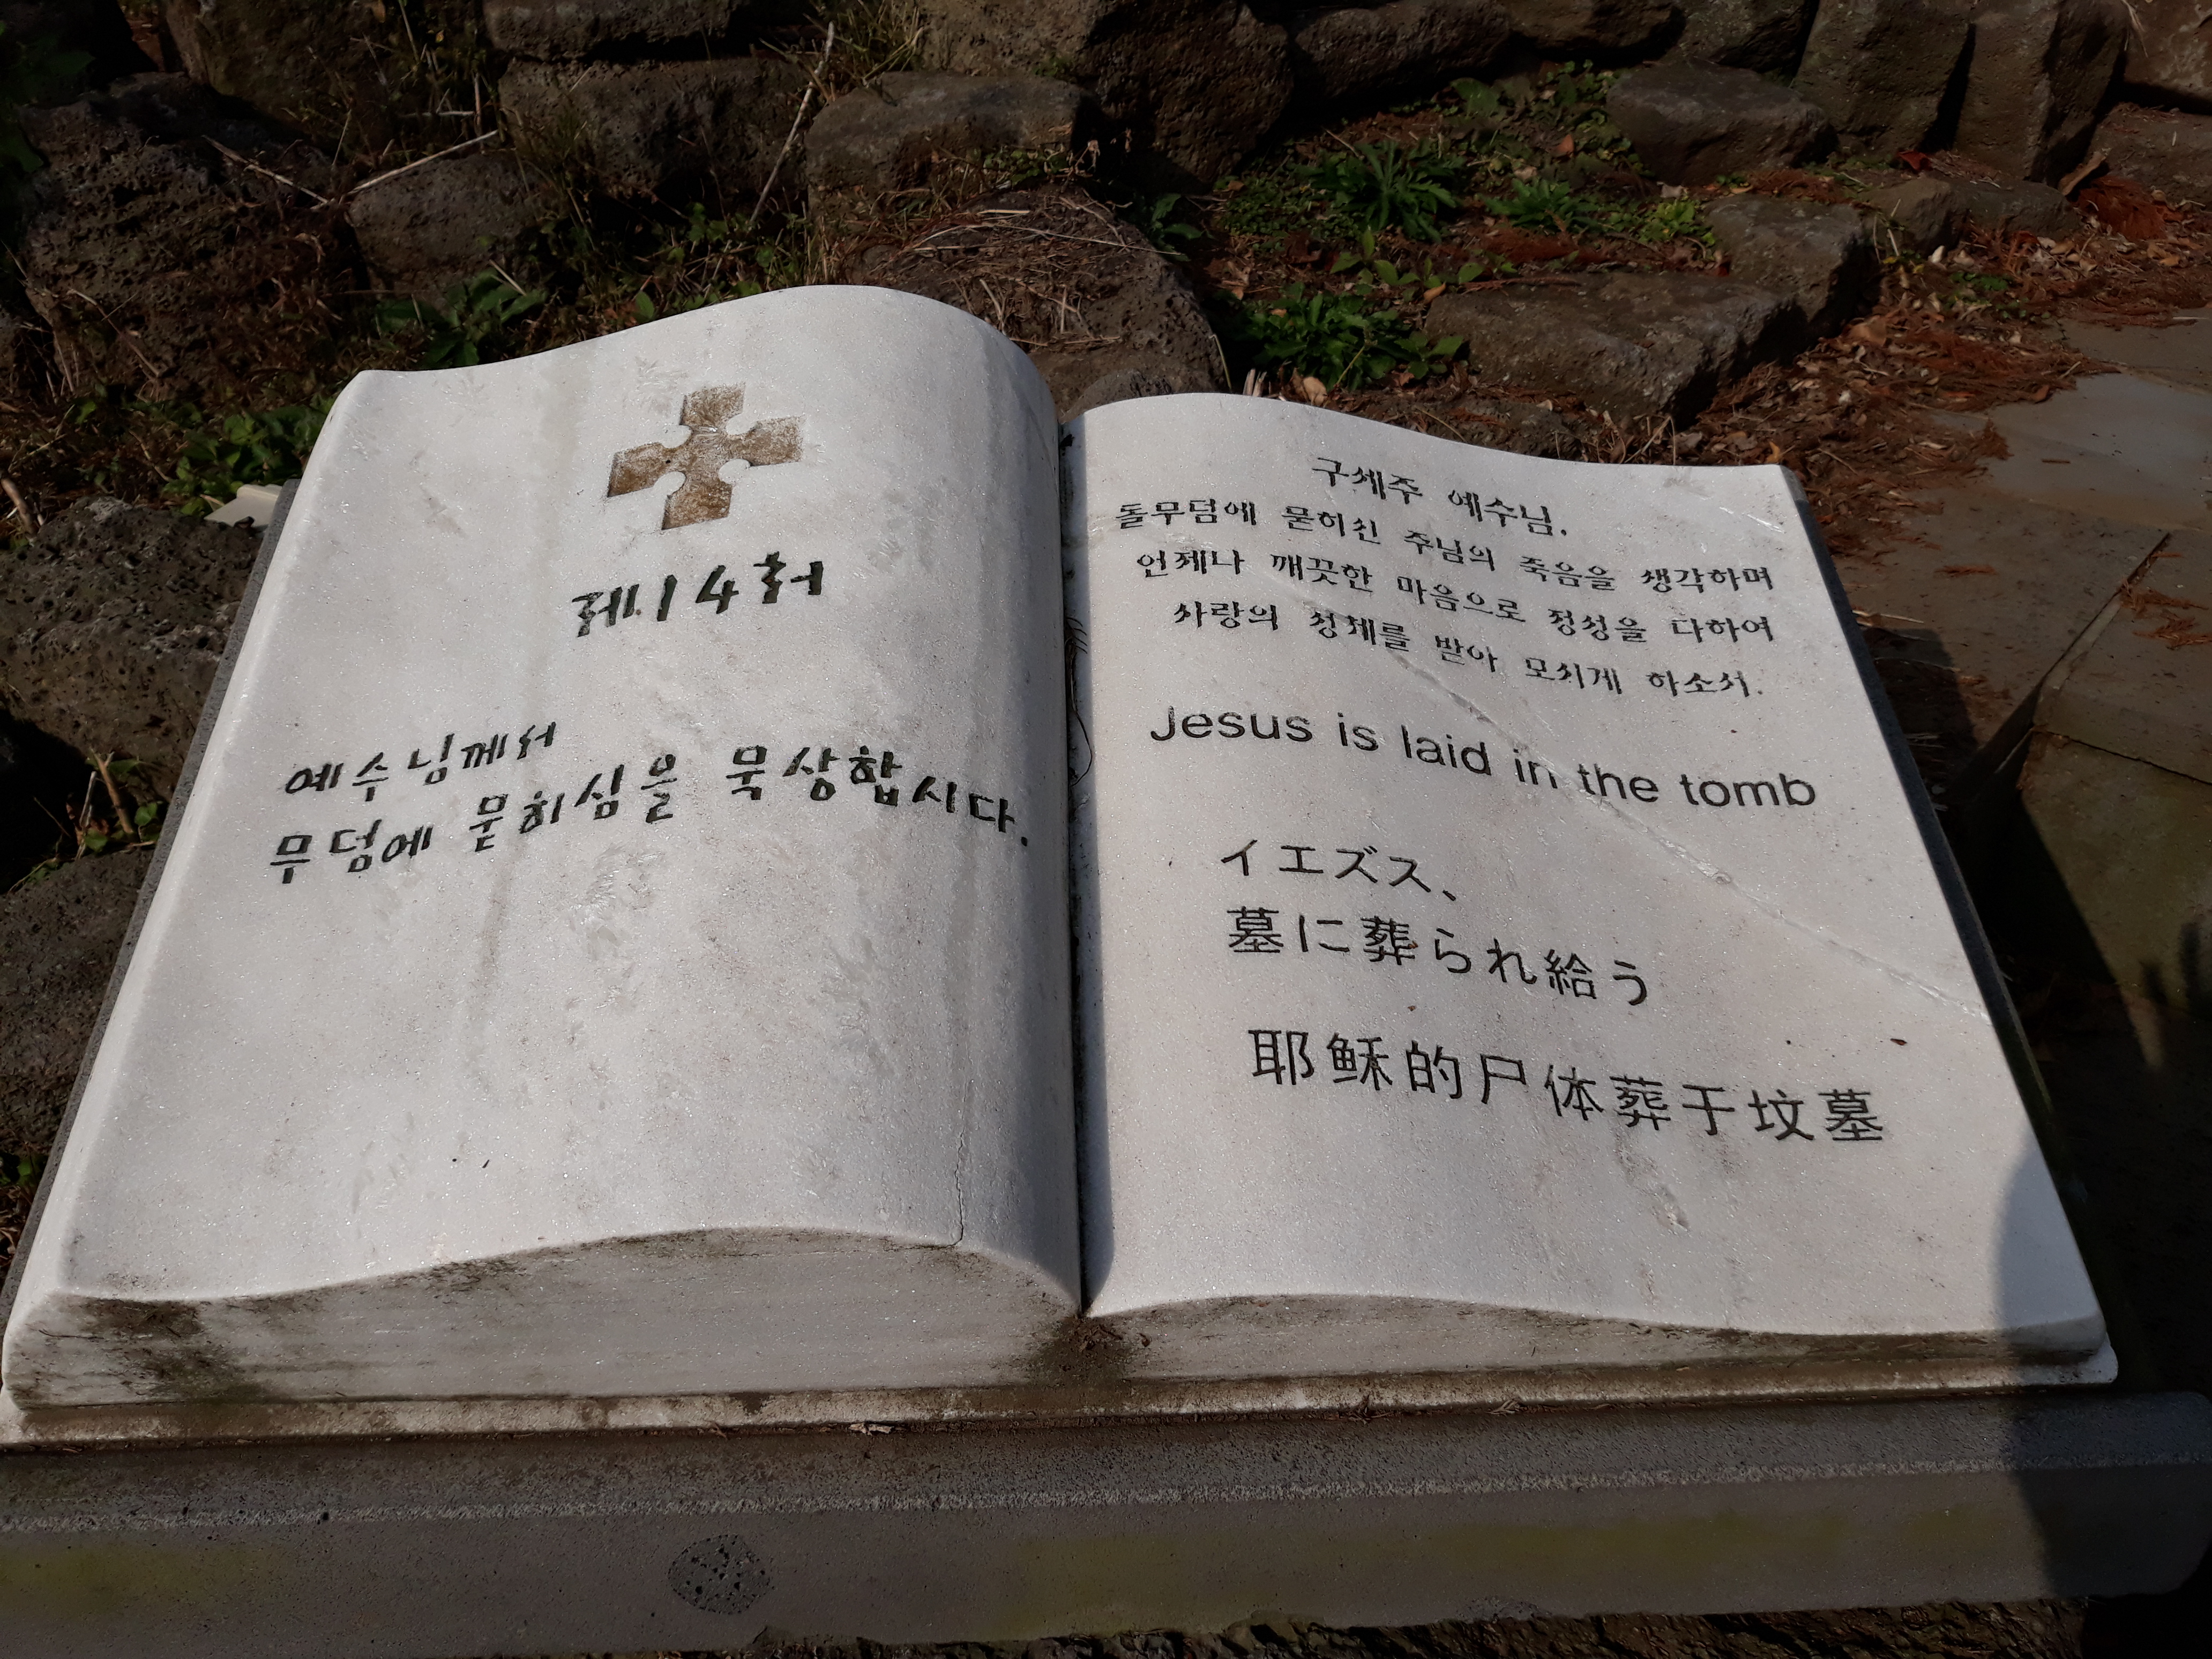 제14처
예수님께서
무덤에 묻히심을 묵상합시다.
구세주 예수님.
돌무덤에 묻히신 주님의 죽음을 생각하며
언제나 깨끗한 마음으로 정성을 다하여
사랑의 성체를 받아 모시게 하소서.
Jesus is laid in the tomb
イエズス、
墓に葬られ給う
耶稣的尸体葬于坟墓